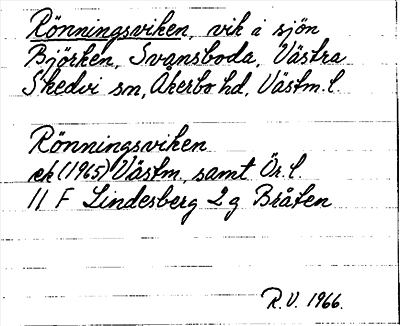 Rönningsviken, vik i sjön
Björken, Svansboda, Västra
Skedvi sn, Åkerbo hd, Västm. l.
Rönningsviken
ek (1965) Västm. samt Ör. l.
11 F Lindesberg 2 g Bråten
R.V. 1966.